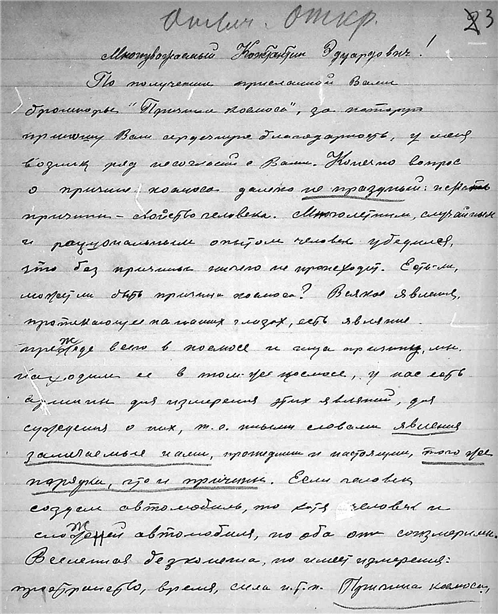 Ответ. Откр.
3
Многоуважаемый Константин Эдуардович!
По получении присланной Вами
брошюры "Причина космоса", за которую
приношу Вам сердечную благодарность, у меня
возник ряд несогласий с Вами. Конечно вопрос
о причине космоса далеко не праздный: искать
причины – свойство человека. Многолетним, случайным
и рациональным опытом человек убедился,
что без причины ничего не происходит. Есть-ли,
может ли быть причина космоса? Всякое явление,
протекающее на наших глазах, есть явление
прежде всего в космосе и ища причину, мы
находим ее в том-же космосе, у нас есть
для измерения этих явлений, для
суждения о них, т.е. иными словами явления
замечаемые нами, прошедшие и настоящие, того же
порядка, что и причины. Если человек
создает автомобиль, то хотя человек и
сложней автомобиля, но оба они соизмеримы.
Вселенная бесконечна, но имеет измерения:
пространство, время, сила и.т.п. Причина космоса,